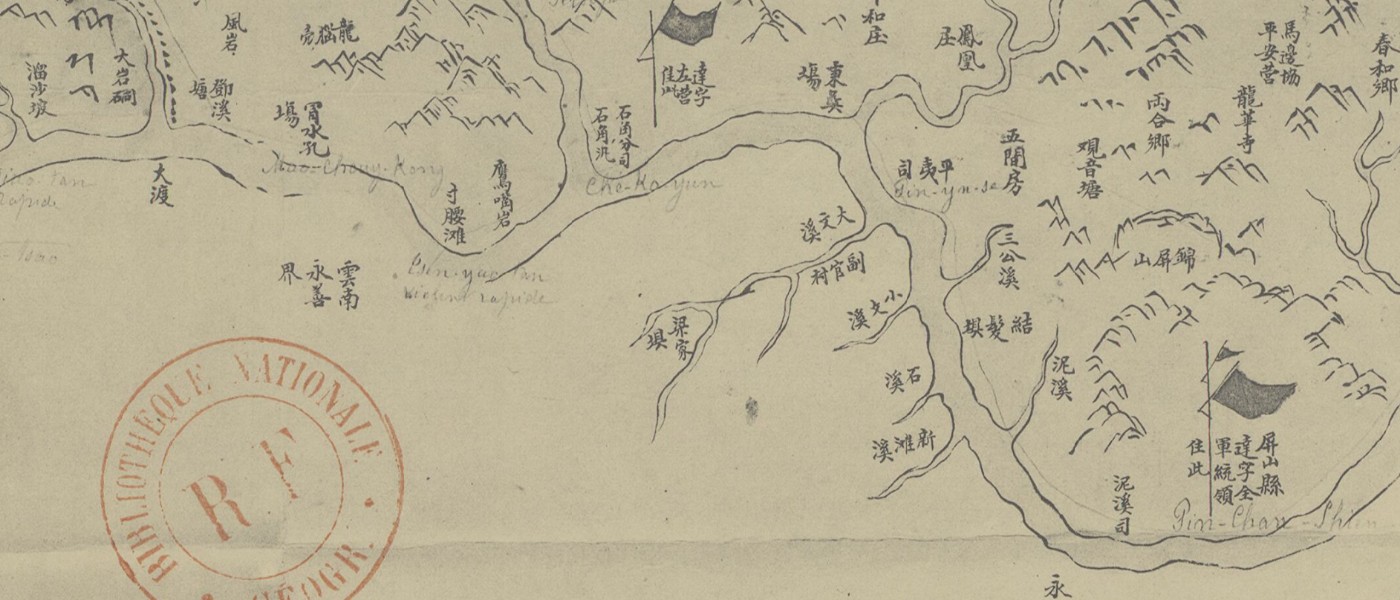 風岩
龍獄旁
大岩硐
溜沙坡
鄧溪塘
冒水孔場
大渡
Mao-Chouy-Kong
鷹嘴岩
寸腰滩
Tsin-yao-tan
violent rapide
rapide
雲南
永善
界
達字
左营
住此
石角分司
石角汛
Che-Ko-yun
東彝場
平和庄
鳳凰庄
平夷司
Pin-yn-se
五間房
馬邊場
平安营
春和鄉
両合鄉
龍華寺
观音塘
錦屏山
三公溪
大文溪
副官村
小文溪
梁家壩
結髮壩
泥溪
石溪
新滩溪
泥溪司
屏山縣
達字全
軍統領
住此
Pin-Chan-Shien
永
BIBLIOTHEQUE NATIONALE
R F
GÉOGR.